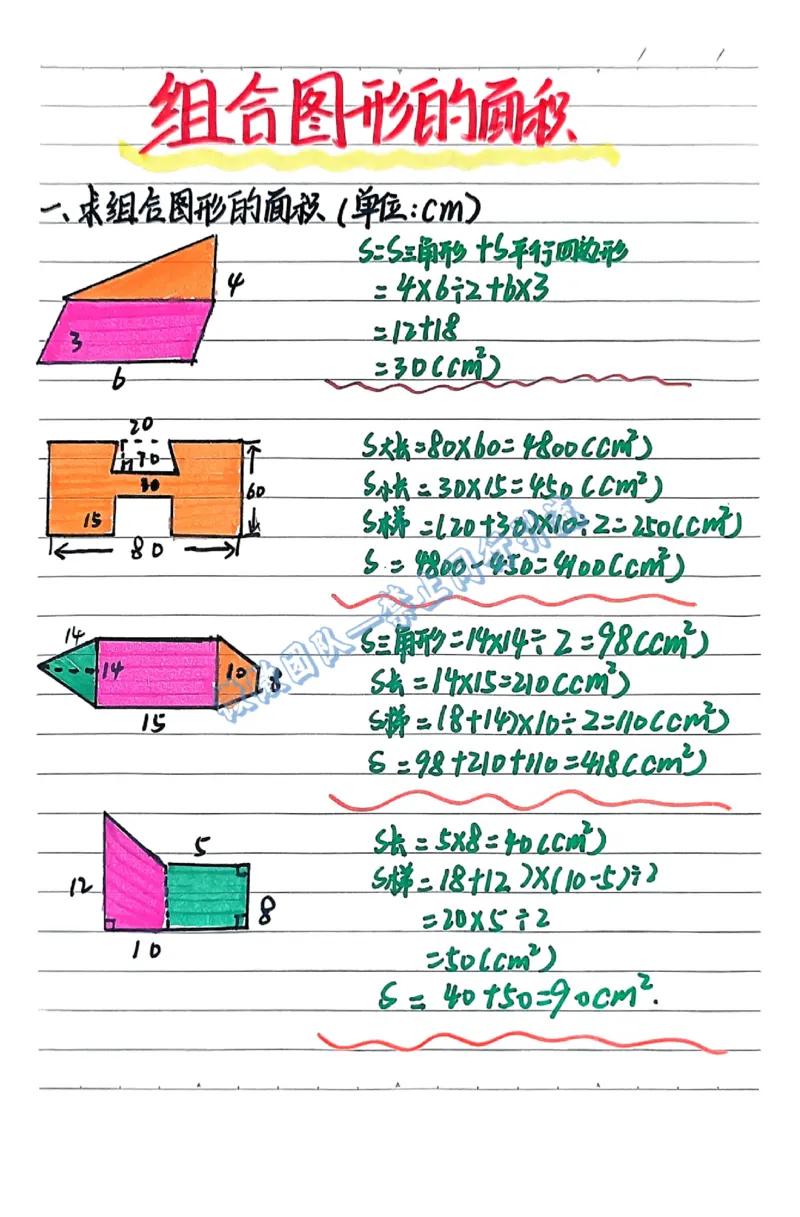 组合图形的面积
一、求组合图形的面积(单位:cm)
4
3
6
S=S三角形+S平行四边形
=4×6÷2+6×3
=12+18
=30(cm²)
20
10
30
60
15
80
S大长=80×60=4800(cm²)
S小长=30×15=450(cm²)
S梯=(20+30)×10÷2=250(cm²)
S=4800-450=4100(cm²)
14
14
10
8
15
S三角形=14×14÷2=98(cm²)
S长=14×15=210(cm²)
S梯=(8+14)×10÷2=110(cm²)
S=98+210+110=418(cm²)
5
12
8
10
S长=5×8=40(cm²)
S梯=(8+12)×(10-5)÷2
=20×5÷2
=50(cm²)
S=40+50=90cm².